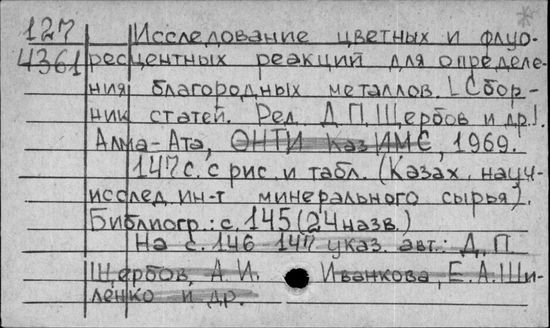 127 Исследование цветных и флуо-
4361 ресцентных реакций для определе-
ния благородных металлов. [Сбор-
ник статей. Ред. Д.П. Щербов и др.].
Алма-Ата, ОНТИ КазИМС, 1969.
147 с. с рис. и табл. (Казах. науч.-
исслед. ин-т минерального сырья).
Библиогр.: с. 145 (24 назв.)
На с. 146 147 указ. авт.: Д.П.
Щербов, А.И. Иванкова, Е.А. Ши-
ленко и др.